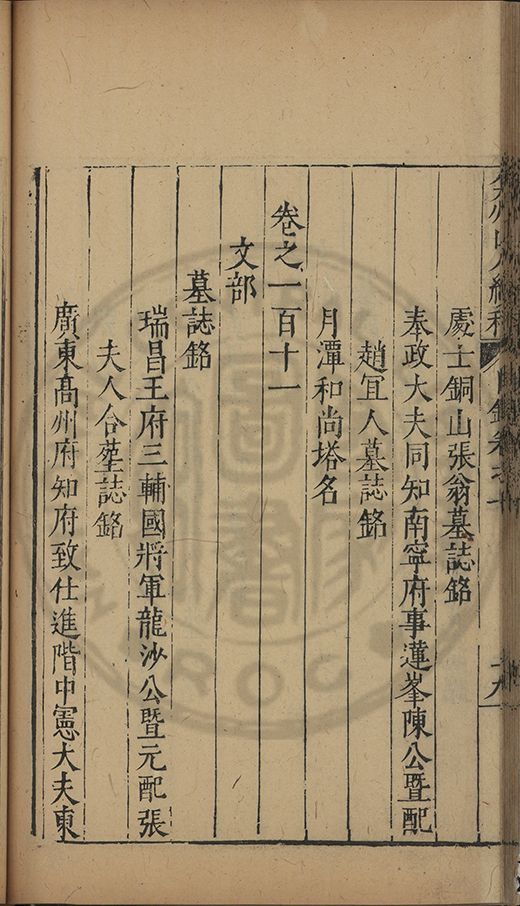 處士銅山張翁墓誌銘
奉政大夫同知南寧府事蓮峯陳公暨配
趙宜人墓誌銘
月潭和尚塔名
卷之一百十一
文部
墓誌銘
瑞昌王府三輔國將軍龍沙公暨元配張
夫人合葬誌銘
廣東高州府知府致仕進階中憲大夫東